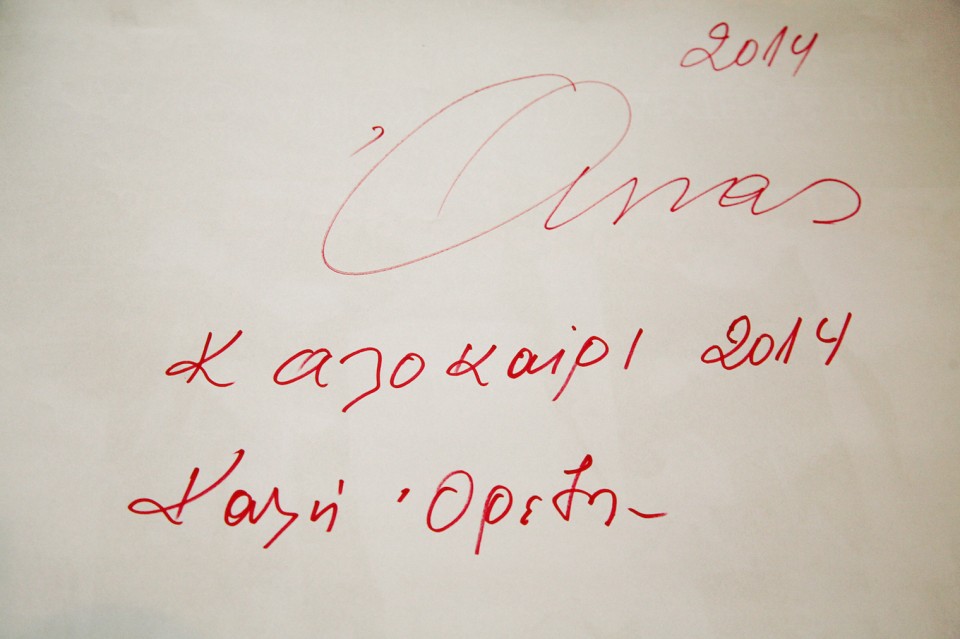 2014
Καλοκαίρι 2014
Καλή Όρεξη